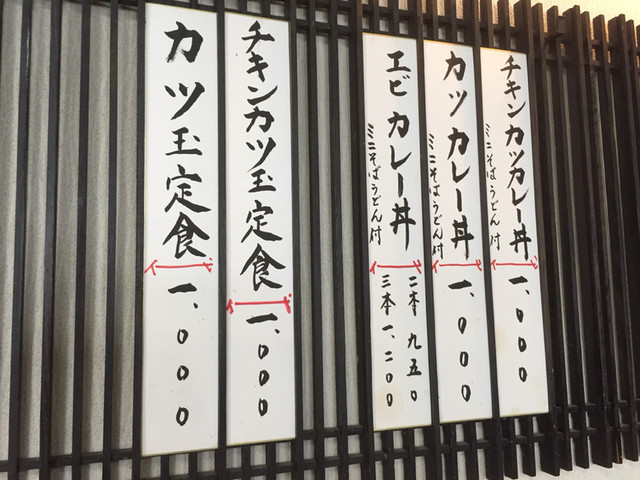 チキンカツカレー丼
ミニそばうどん付
一、000
カツカレー丼
ミニそばうどん付
一、000
エビカレー丼
ミニそばうどん付
二本 九五0
三本 一、二00
チキンカツ玉定食
一、000
カツ玉定食
一、000